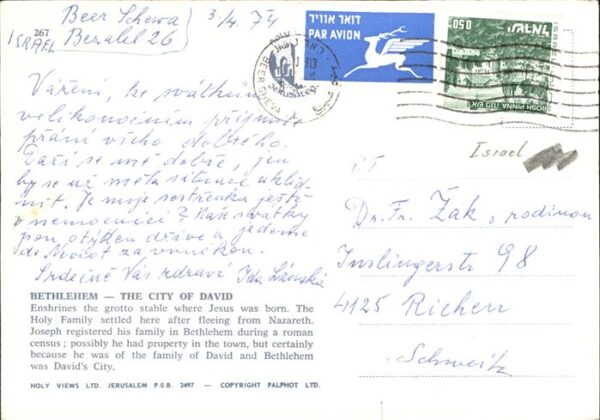 Beer Schewa
Bezalel 26
ISRAEL
267
3/4. 74
דואר אוויר
PAR AVION
BEER SHEVA
Jerusalem
0.50
ISRAEL
ROSH PINNA
Israel
Vážení, ke svátkům
velikonočním přijměte
přání všeho dobrého.
Daří se mě dobře, jen
by se už měla situace uklid-
nit. Je moje sestřenka ještě
v nemocnici? Naše svátky
jsou o týden dříve a jedeme
do Mozot za vnučkou.
Srdečně Vás zdraví Ida
Dr. Fr. Žak s rodinou
Inslingerstr 98
4125 Riehen
Schweitz
BETHLEHEM — THE CITY OF DAVID
Enshrines the grotto stable where Jesus was born. The
Holy Family settled here after fleeing from Nazareth.
Joseph registered his family in Bethlehem during a roman
census ; possibly he had property in the town, but certainly
because he was of the family of David and Bethlehem
was David's City.
HOLY VIEWS LTD. JERUSALEM P.O.B. 2497 — COPYRIGHT PALPHOT LTD.